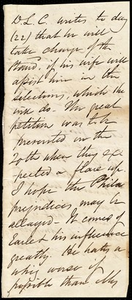 D. L. C. writes to day
(22) that he will
take charge of the
Stand, if his wife will
assist him in the
selections, which she
will do. The great
petition was to be
presented on the
20th when they ex-
pected a flare up
I hope the Phila
prejudices may be
allayed - It comes of
and his influence
greatly. He hates a
whig worse if
possible than Abby